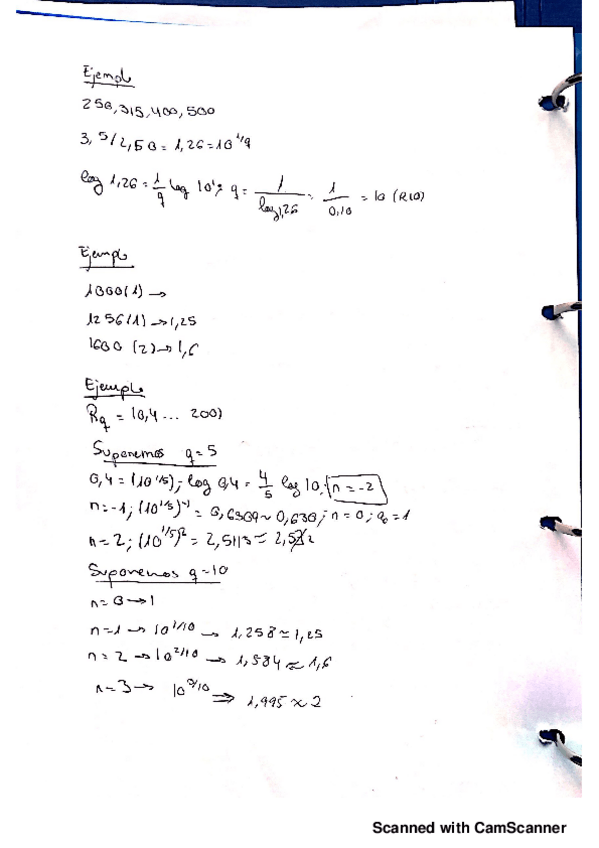 Ejemplo
250, 315, 400, 500
3,5/2,50 = 1,26 = 10^1/q
log 1,26 = 1/q log 10'; q = 1/log 1,26 = 1/0,10 = 10 (R10)
Ejemplo
1000(1) →
1250(1) → 1,25
1600 (2) → 1,6
Ejemplo
Rq = (0,4 ... 200)
Suponemos q=5
0,4 = (10^1/5); log 0,4 = 4/5 log 10; n = -2
n=-1; (10^1/5)^-1 = 0,6309 ≈ 0,630; n = 0; a0 = 1
n=2; (10^1/5)^2 = 2,5113 ≈ 2,5
Suponemos q=10
n=0 → 1
n=1 → 10^1/10 → 1,258 ≈ 1,25
n=2 → 10^2/10 → 1,584 ≈ 1,6
n=3 → 10^3/10 ⇒ 1,995 ≈ 2
Scanned with CamScanner